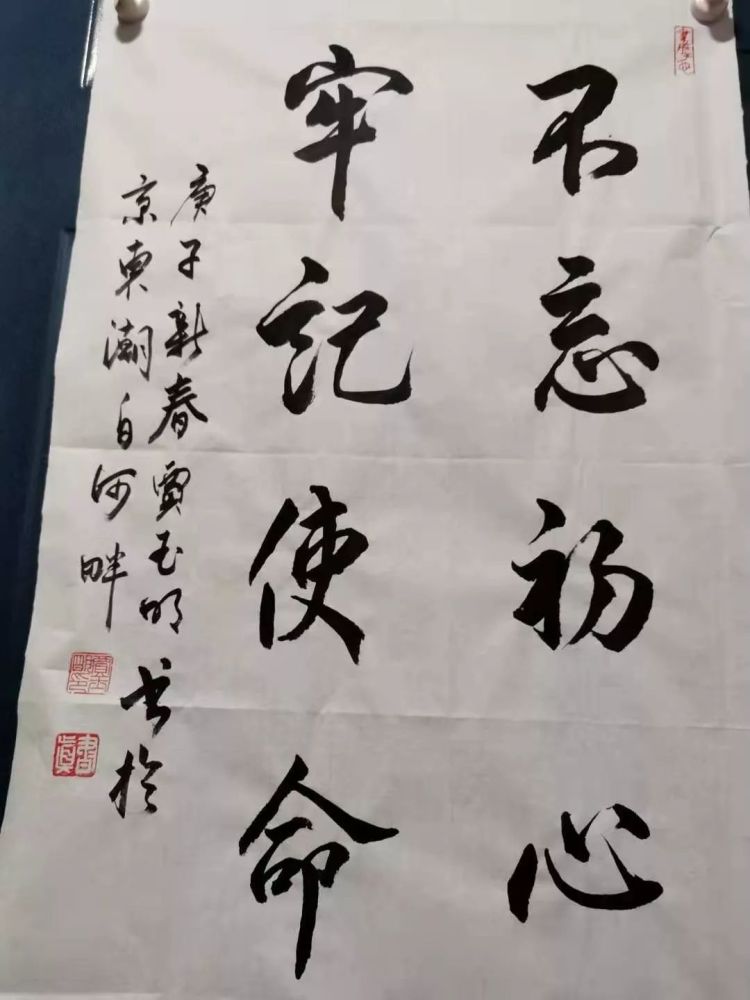 不忘初心
牢记使命
庚子新春贾玉明书於
京東潮白河畔